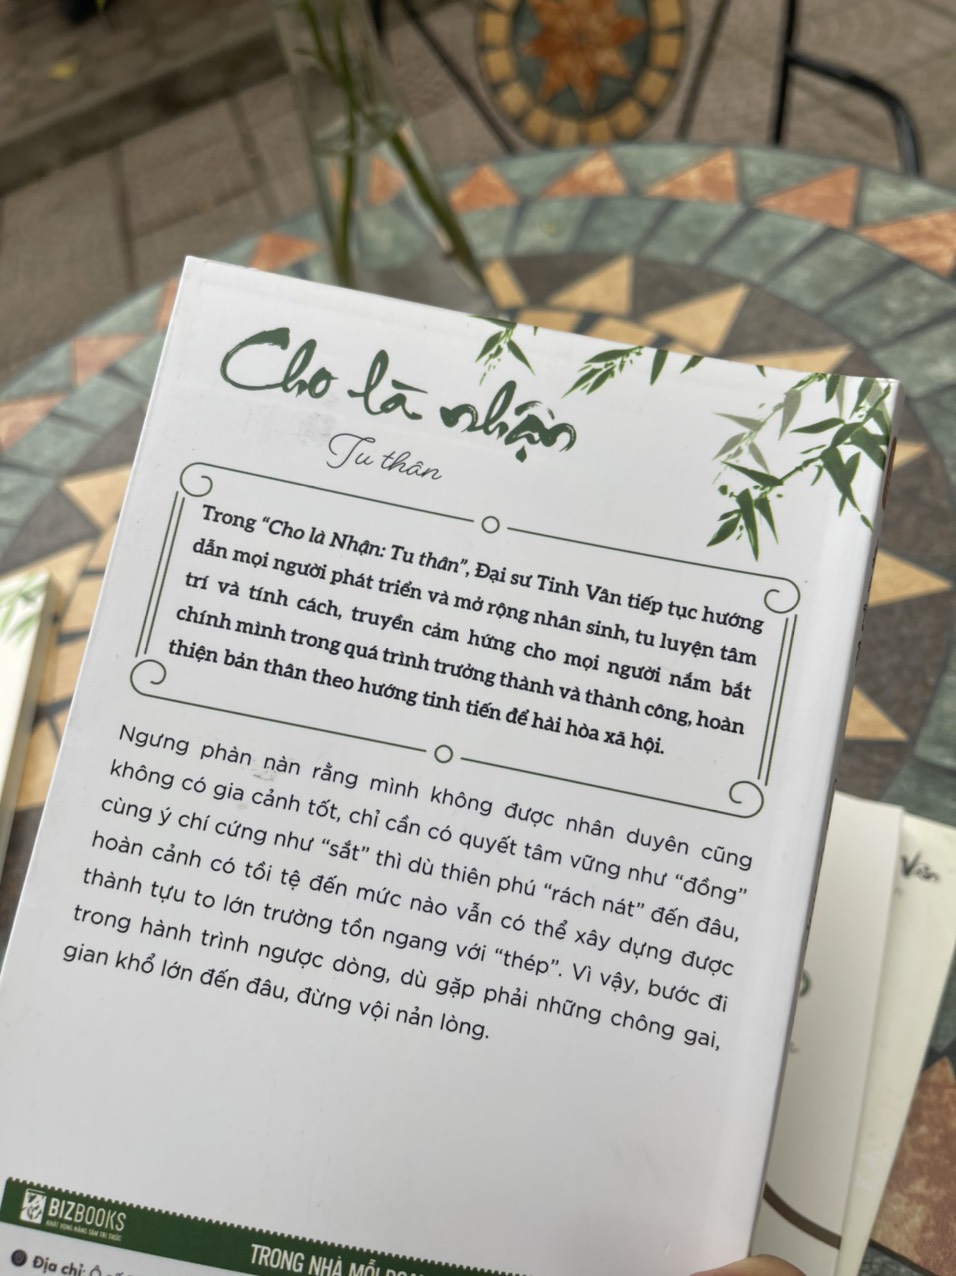 Cho là nhận
Tu thân
Trong “Cho là Nhận: Tu thân”, Đại sư Tinh Vân tiếp tục hướng
dẫn mọi người phát triển và mở rộng nhân sinh, tu luyện tâm
trí và tính cách, truyền cảm hứng cho mọi người nắm bắt
chính mình trong quá trình trưởng thành và thành công, hoàn
thiện bản thân theo hướng tinh tiến để hài hòa xã hội.
Ngưng phàn nàn rằng mình không được nhân duyên cũng
không có gia cảnh tốt, chỉ cần có quyết tâm vững như “đồng”
cùng ý chí cứng như “sắt” thì dù thiên phú “rách nát” đến đâu,
hoàn cảnh có tồi tệ đến mức nào vẫn có thể xây dựng được
thành tựu to lớn trường tồn ngang với “thép”. Vì vậy, bước đi
trong hành trình ngược dòng, dù gặp phải những chông gai,
gian khổ lớn đến đâu, đừng vội nản lòng.
BIZBOOKS
TRONG NHÀ MỖI
Địa chỉ: Ô
Vân